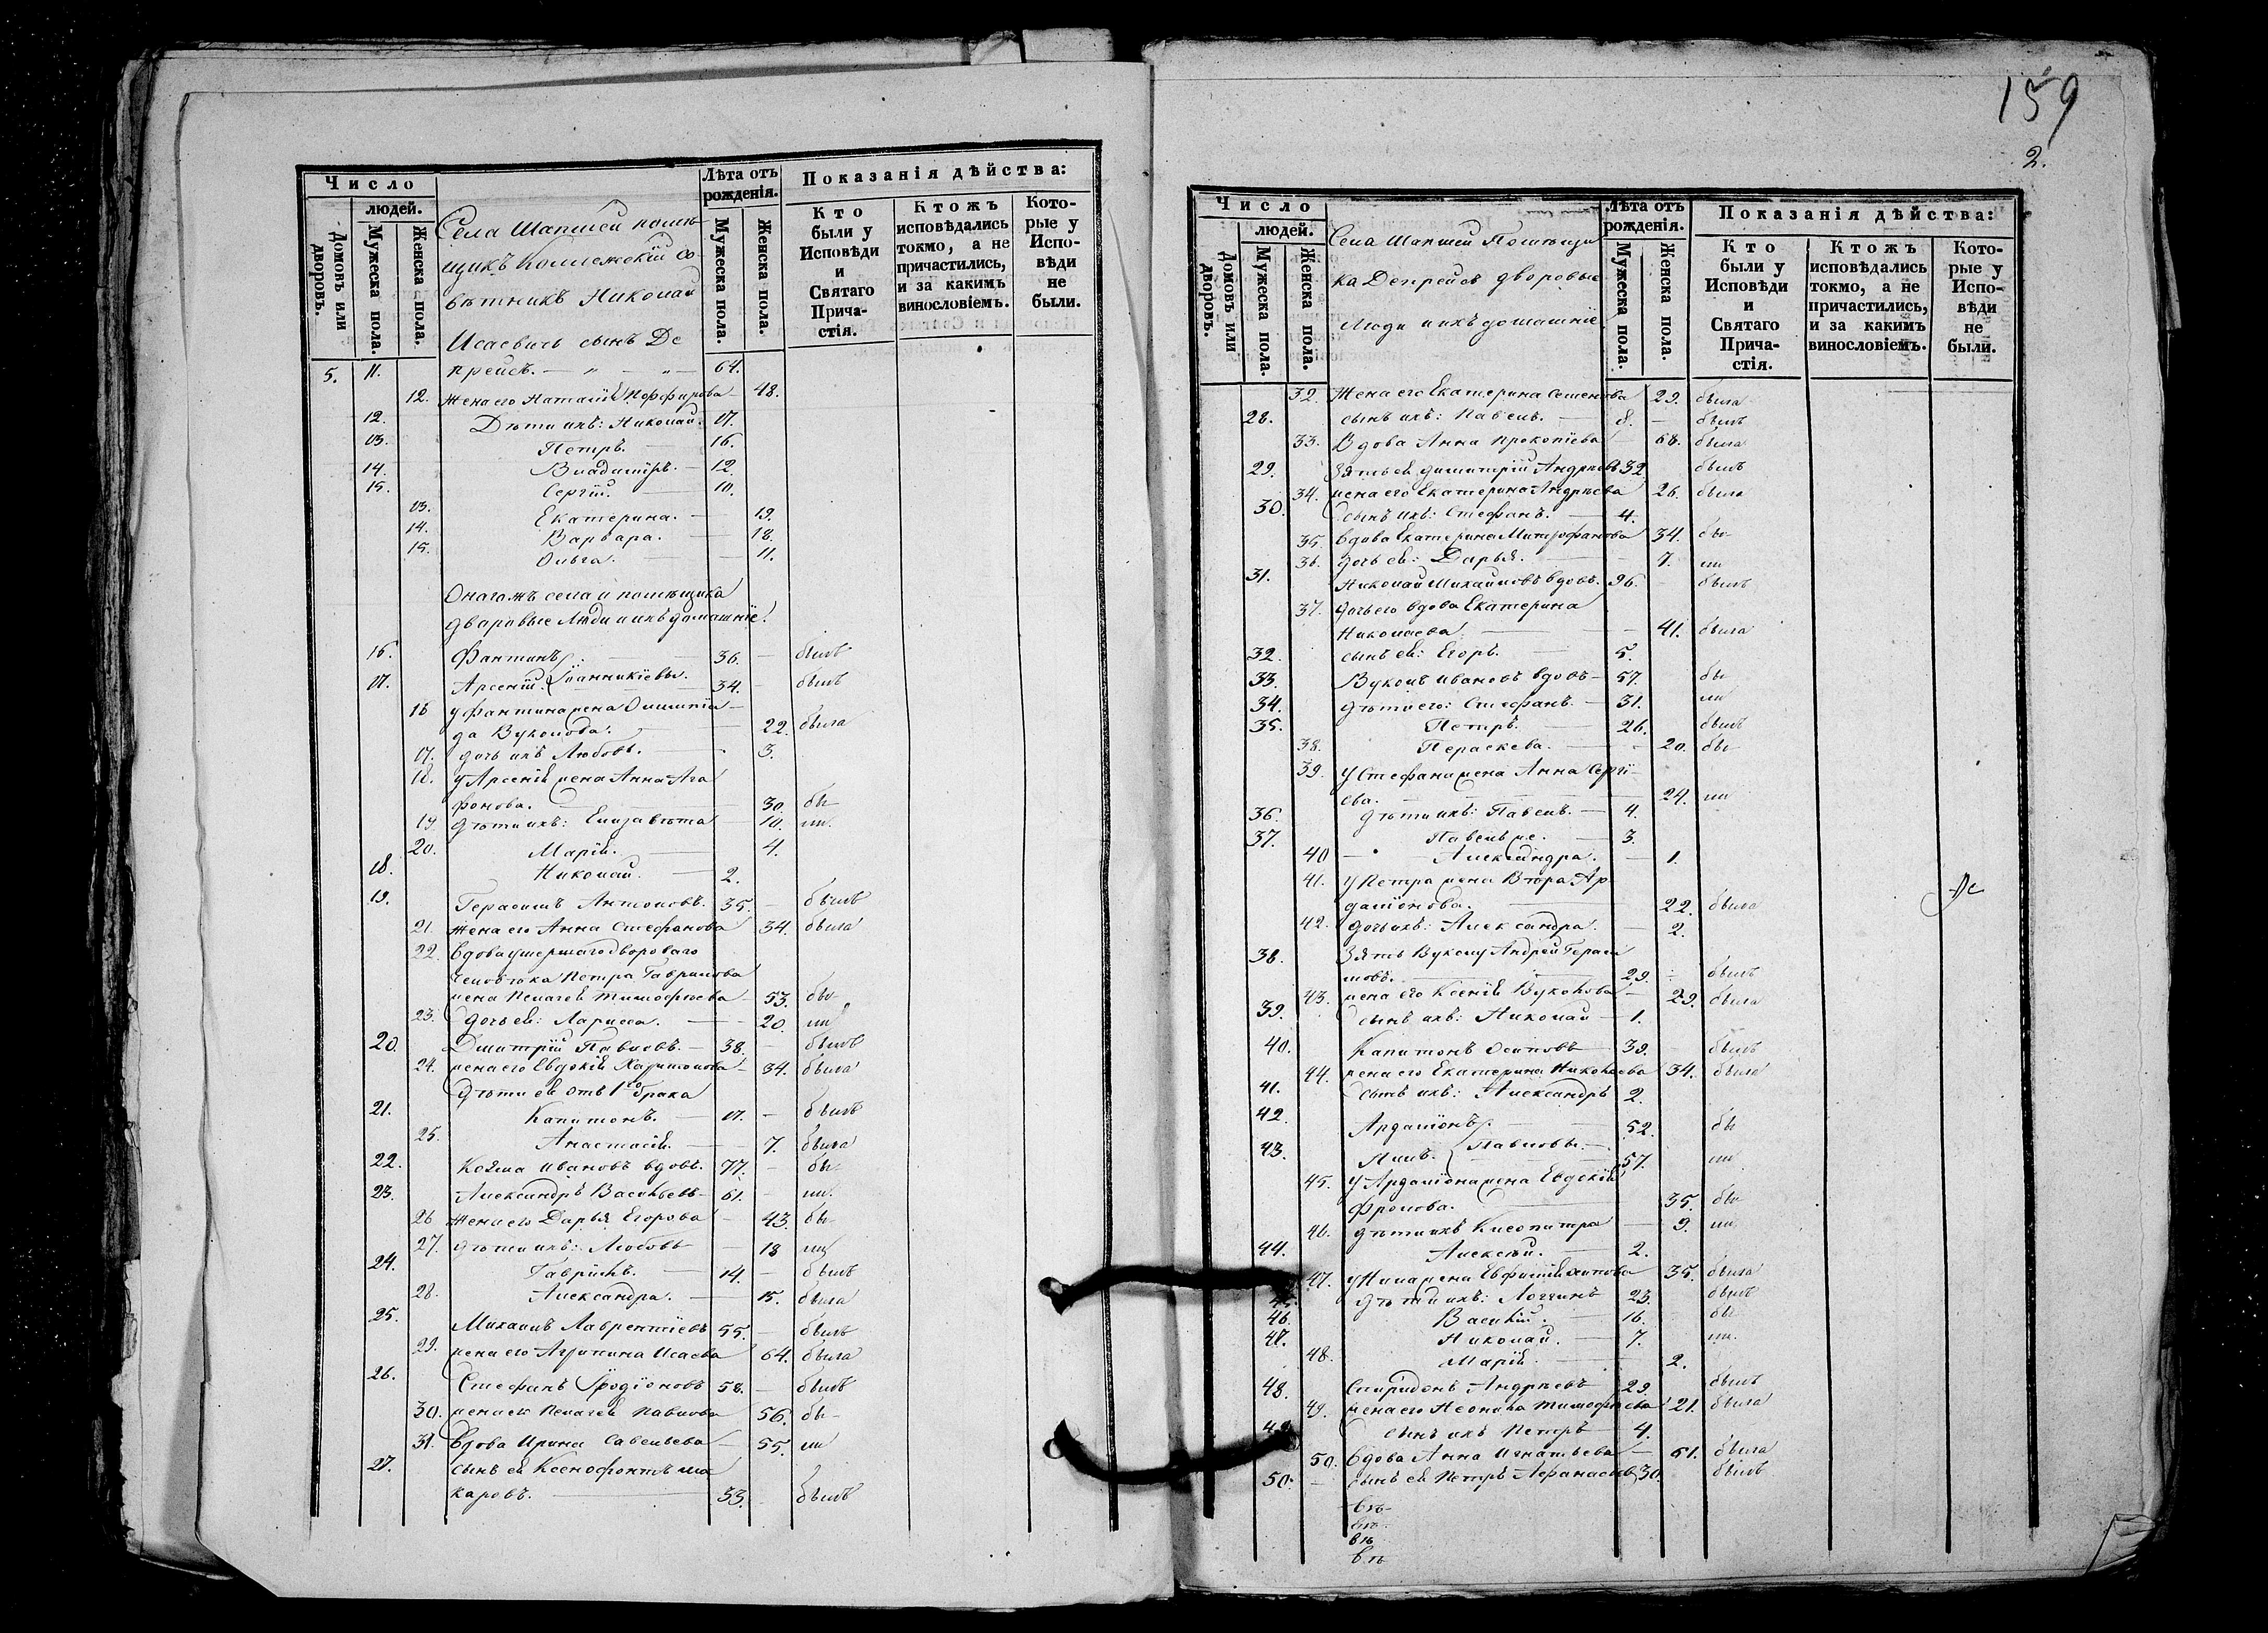 Число
людей.
Домовъ или дворовъ.
Мужеска пола.
Женска пола.
Села Шапшей помѣ-
щикъ Коллежскiй со-
вѣтникъ Николай
Исаевичь сынъ Де
Лѣта отъ рожденiя.
Мужеска пола.
Женска пола.
Показанiя дѣйства:
Кто были у Исповѣди и Святаго Прича-стiя.
Ктожъ исповѣдались токмо, а не причастились, и за какимъ винословiемъ.
Кото-рые у Испо-вѣди не были.
5. 11. прейсъ. — „ — „ — 64.
12. Жена его Наталiя Порфирова 48.
12. Дѣти ихъ: Николай. 17.
13. Петръ. 16.
14. Владимiръ. — 12.
15. Сергiй. — 10.
13. Екатерина. — 19.
14. Варвара. — 18.
15. Ольга. — 11.
Онагожъ села и помѣщика
дваровые люди и ихъ домашнiе.
16. Фантинъ 36. — былъ
17. Арсенiй. Iанникiевы. 34. — былъ
16 у Фантина жена Олимпiа-
да Вуколова. 22. была
17. дочь ихъ Любовь. 3.
18. у Арсенiя жена Анна Ага
фонова. 30. бы-
19. дѣти ихъ: Елизавѣта — 10. ли.
20. Марiя. 4.
18. Николай. 2.
19. Герасимъ Антоновъ. 35. — былъ
21. Жена его Анна Стефанова 34. была
22. Вдова умершаго двороваго
человѣка Петра Гаврилова
жена Пелагея Тимофѣева 53. бы-
23. дочь ея: Ларисса. 20. ли
20. Дмитрiй Павловъ. — 38. — былъ
24. жена его Евдокiя Харитонова 34. была
Дѣти ея отъ 1го брака
21. Капитонъ. 17. — былъ
25. Анастасiя. 7. была
22. Козма Ивановъ вдовъ. 77. — бы-
23. Александръ Васильевъ 61. — ли.
26 Жена его Дарья Егорова 43. бы-
27. дѣти ихъ: Любовь 18 ли
24. Гаврiилъ. 14. — былъ
28. Александра. 15. была
25. Михаилъ Лаврентiевъ 55. — былъ
29. жена его Агрипина Исаева 64. была
26. Стефанъ Iродiоновъ 58. — былъ
30. жена его Пелагея Павлова 56. бы-
31. Вдова Ирина Савельева 55. ли
27. сынъ ея Ксенофонтъ Ма
каровъ. 33. былъ
159
2.
Число
людей.
Домовъ или дворовъ.
Мужеска пола.
Женска пола.
Села Шапшей Помѣщи
ка Депрейсъ дворовые
Люди и ихъ домашнiе.
Лѣта отъ рожденiя.
Мужеска пола.
Женска пола.
Показанiя дѣйства:
Кто были у Исповѣди и Святаго Прича-стiя.
Ктожъ исповѣдались токмо, а не причастились, и за какимъ винословiемъ.
Кото-рые у Испо-вѣди не были.
32. Жена его Екатерина Семенова 29. была
28. сынъ ихъ: Павелъ. 8. — былъ
33. Вдова Анна Прокопiева 68. была
29. Зять ея Димитрiй Андреевъ 32 былъ
34. жена его Екатерина Андрѣева 26. была
30. сынъ ихъ: Стефанъ. 4.
35. вдова Екатерина Митрофанова 34. бы-
36. дочь ея: Дарья. 7. ли
31. Николай Михайловъ вдовъ. 96. — былъ
37. дочь его вдова Екатерина
Николаева. 41. была
32. сынъ ея: Егоръ. 5.
33. Вуколъ Ивановъ вдовъ — 57. бы-
34. дѣти его: Стефанъ. — 31. ли
35. Петръ. 26. былъ
38. Параскева. 20. бы-
39. У Стефана жена Анна Сергi-
ева. 24. ли
36. дѣти ихъ: Павелъ. — 4.
37. Павелъ же. 3.
40 Александра. 1.
41. у Петра жена Вѣра Ар
далiонова. 22. была
42. дочь ихъ: Александра. 2.
38. Зять Вуколу Андрей Гераси
мовъ. 29. былъ
43. жена его Ксенiя Вуколова 29. была
39. сынъ ихъ: Николай — 1.
40. Капитонъ Осиповъ 39. былъ
44. жена его Екатерина Николаева 34. была
41. сынъ ихъ: Александръ 2.
42. Ардалiонъ 52. бы
43. Нилъ. Павловы. 57. ли
45. У Ардалiона жена Евдокiя
Фролова. 35. бы-
46. дѣти ихъ Клеопатра 9. ли
44. Алексѣй. 2.
47. у Нила жена Евфимiя 35. была
45. дѣти ихъ: Логгинъ 23. былъ
46. Василiй. 16. бы-
47. Николай. 7. ли.
48. Марiя. 2.
48. Спиридонъ Андрѣевъ 29. былъ
49. жена его Неонила Тимофѣева 21. была
49. сынъ ихъ Петръ 4.
50. Вдова Анна Игнатьева 61. была
50. сынъ ея Петръ Афанасьевъ 30. былъ